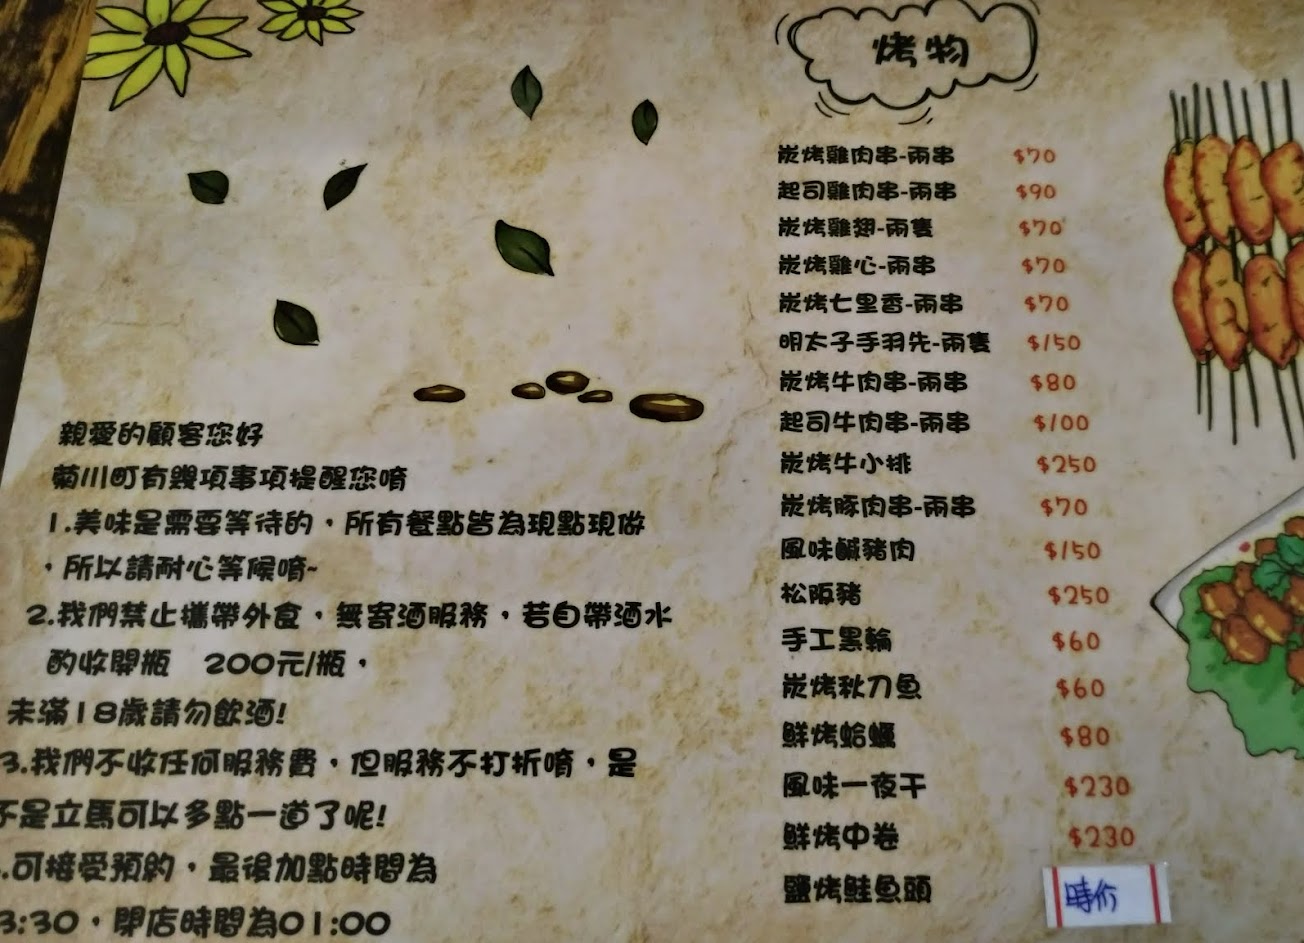 烤物
炭烤雞肉串-兩串 $70
起司雞肉串-兩串 $90
炭烤雞翅-兩隻 $70
炭烤雞心-兩串 $70
炭烤七里香-兩串 $70
明太子手羽先-兩隻 $150
炭烤牛肉串-兩串 $80
起司牛肉串-兩串 $100
炭烤牛小排 $250
炭烤豚肉串-兩串 $70
風味鹹豬肉 $150
松阪豬 $250
手工黑輪 $60
炭烤秋刀魚 $60
鮮烤蛤蠣 $80
風味一夜干 $230
鮮烤中卷 $230
鹽烤鮭魚頭 時价
親愛的顧客您好
菊川町有幾項事項提醒您唷
1.美味是需要等待的，所有餐點皆為現點現做
，所以請耐心等候唷~
2.我們禁止攜帶外食，無寄酒服務，若自帶酒水
酌收開瓶 200元/瓶，
未滿18歲請勿飲酒!
3.我們不收任何服務費，但服務不打折唷，是
不是立馬可以多點一道了呢!
.可接受預約，最後加點時間為
3:30，閉店時間為01:00